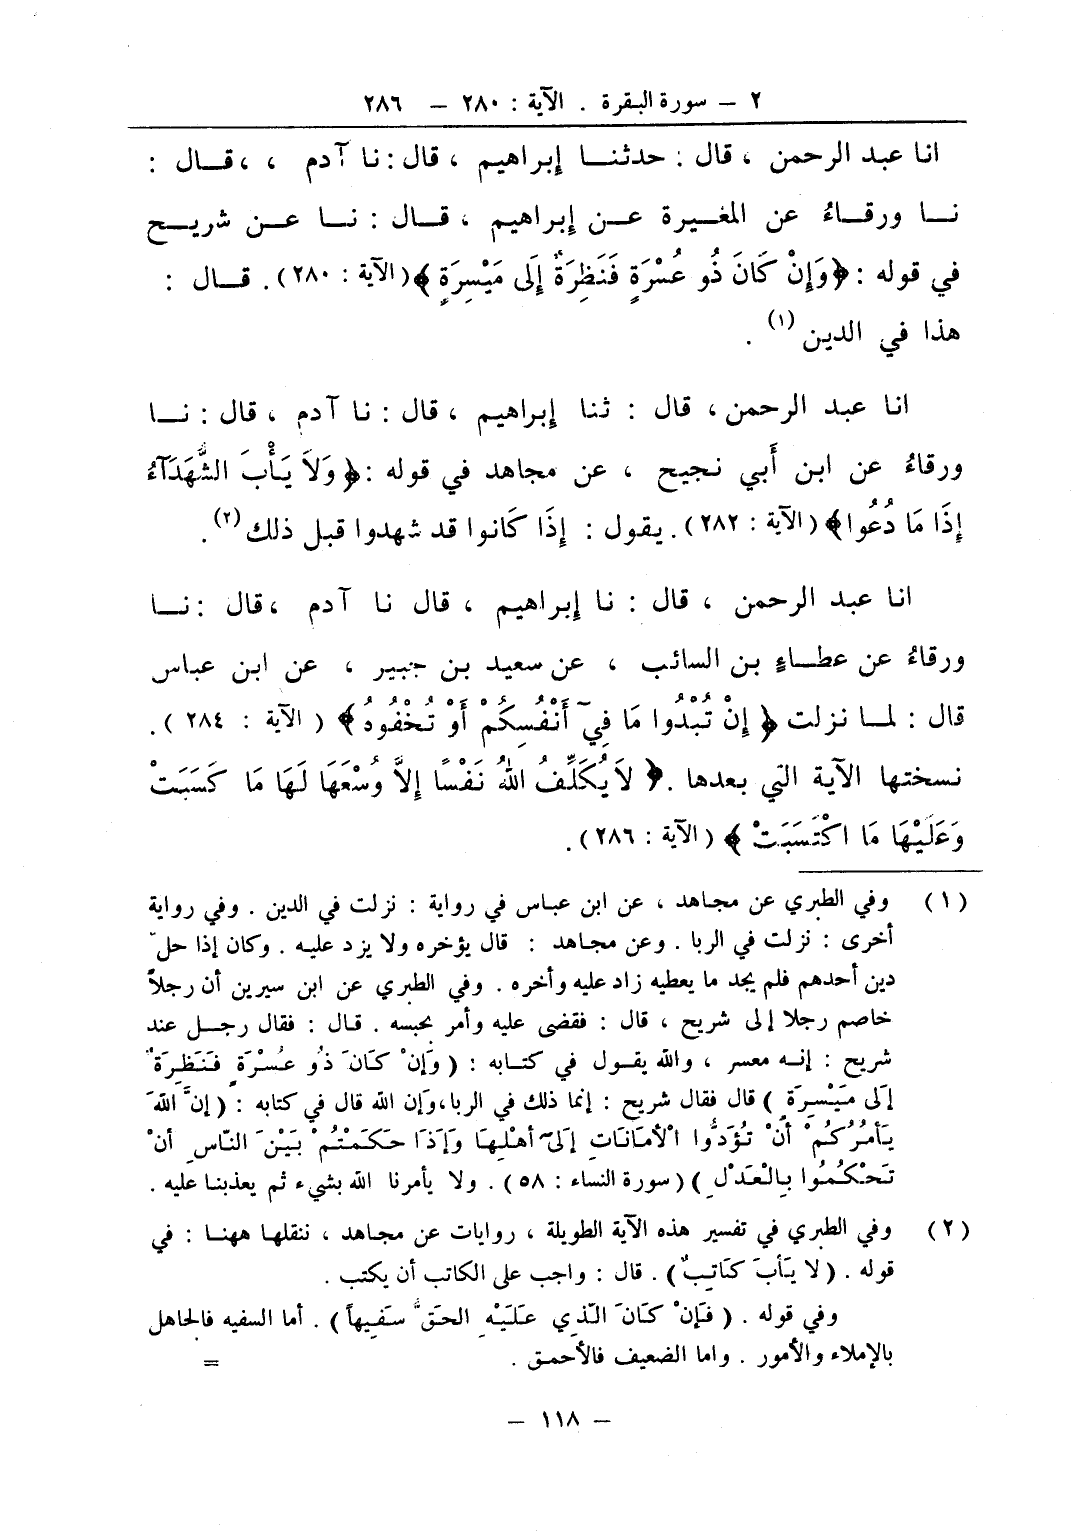 ٢ – سورة البقرة . الآية : ٢٨٠ – ٢٨٦
انا عبد الرحمن ، قال : حدثنـا إبراهيم ، قال : نا آدم ، ، قـال :
نـا ورقـاءُ عن المغـيرة عـن إبراهيم ، قـال : نـا عـن شريـح
في قوله : ﴿وَإِنْ كَانَ ذُو عُسْرَةٍ فَنَظِرَةٌ إِلَى مَيْسِرَةٍ ﴾ (الآية : ٢٨٠) . قـال :
هذا في الدين (١) .
انا عبد الرحمن ، قال : ثنا إبراهيم ، قال : نا آدم ، قال : نـا
ورقاءُ عن ابن أَبي نجيح ، عن مجاهد في قوله : ﴿ وَلاَ يَأْبَ الشُّهَدَآءُ
إِذَا مَا دُعُوا﴾ (الآية : ٢٨٢) . يقول : إِذَا كَانوا قد شهدوا قبل ذلك (٢) .
انا عبد الرحمن ، قال : نا إبراهيم ، قال نا آدم ، قال : نـا
ورقاءُ عن عطـاءٍ بن السائب ، عن سعيد بن جبير ، عن ابن عباس
قال : لمـا نزلت ﴿ إِنْ تُبْدُوا مَا فِيٓ أَنْفُسِكُمْ أَوْ تُخْفُوهُ ﴾ ( الآية : ٢٨٤ ) .
نسختها الآية التي بعدها . ﴿ لاَ يُكَلِّفُ اللهُ نَفْسًا إِلاَّ وُسْعَهَا لَهَا مَا كَسَبَتْ
وَعَلَيْهَا مَا اكْتَسَبَتْ ﴾ (الآية : ٢٨٦) .
(١) وفي الطبري عن مجاهد ، عن ابن عباس في رواية : نزلت في الدين . وفي رواية
أخرى : نزلت في الربا . وعن مجاهد : قال يؤخره ولا يزد عليه . وكان إذا حلّ
دين أحدهم فلم يجد ما يعطيه زاد عليه وأخره . وفي الطبري عن ابن سيرين أن رجلاً
خاصم رجلا إلى شريح ، قال : فقضى عليه وأمر بحبسه . قـال : فقال رجـل عند
شريح : إنـه معسر ، والله يقـول في كتـابه : ( وَإنْ كَانَ ذُو عُسْرَةٍ فَنَظِرَةٌ
إلَى مَيْسِرَةٍ ) قال فقال شريح : إنما ذلك في الربا ، وإن الله قال في كتابه : ( إنَّ اللهَ
يَأمُرُكُمْ أنْ تُؤَدُّوا الْأمَانَاتِ إلَىٓ أهْلِهَا وَإذَا حَكَمْتُمْ بَيْنَ النَّاسِ أنْ
تَحْكُمُوا بِالْعَدْلِ ) (سورة النساء : ٥٨) . ولا يأمرنا الله بشيء ثم يعذبنا عليه .
(٢) وفي الطبري في تفسير هذه الآية الطويلة ، روايات عن مجاهد ، ننقلها ههنا : في
قوله . ( لا يَأبَ كَاتِبٌ ) . قال : واجب على الكاتب أن يكتب .
وفي قوله . ( فَإنْ كَانَ الَّذِي عَلَيْهِ الحَقُّ سَفِيهاً ) . أما السفيه فالجاهل
بالإملاء والأمور . واما الضعيف فالأحمق . =
– ١١٨ –